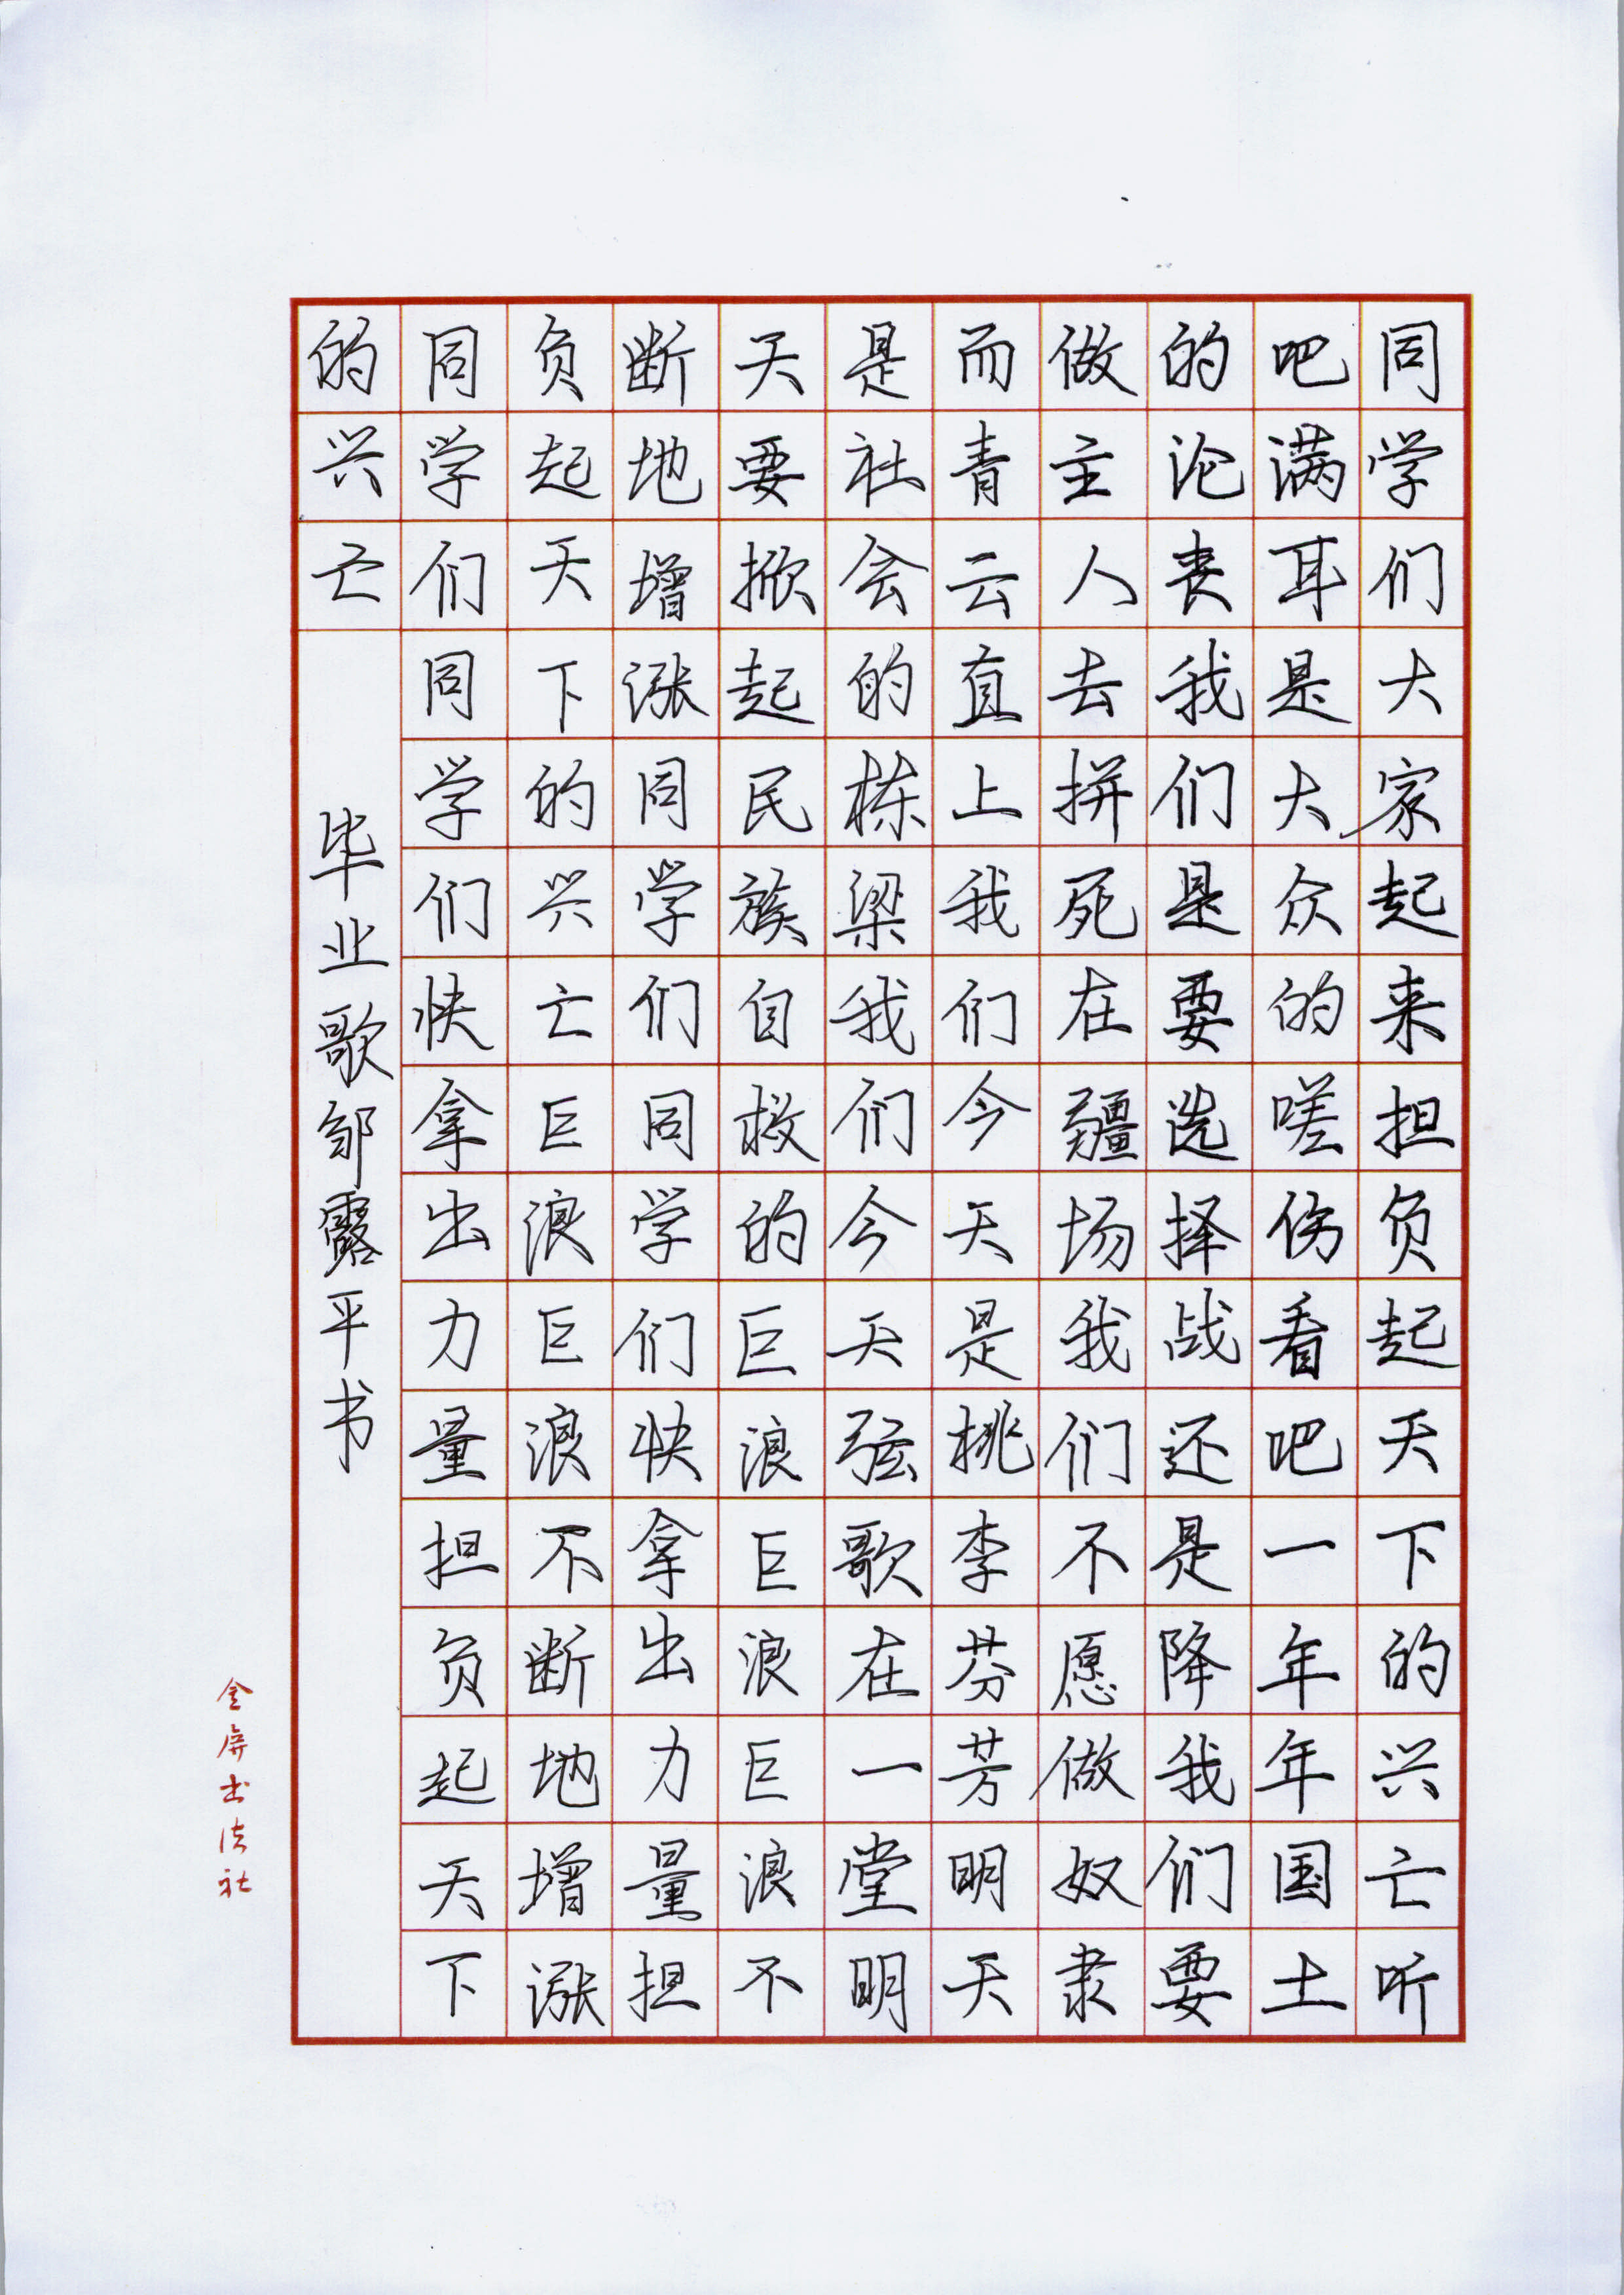 同学们大家起来担负起天下的兴亡听
吧满耳是大众的嗟伤看吧一年年国土
的沦丧我们是要选择战还是降我们要
做主人去拼死在疆场我们不愿做奴隶
而青云直上我们今天是桃李芬芳明天
是社会的栋梁我们今天弦歌在一堂明
天要掀起民族自救的巨浪巨浪巨浪不
断地增涨同学们同学们快拿出力量担
负起天下的兴亡巨浪巨浪不断地增涨
同学们同学们快拿出力量担负起天下
的兴亡
毕业歌邹露平书
金屏出法社